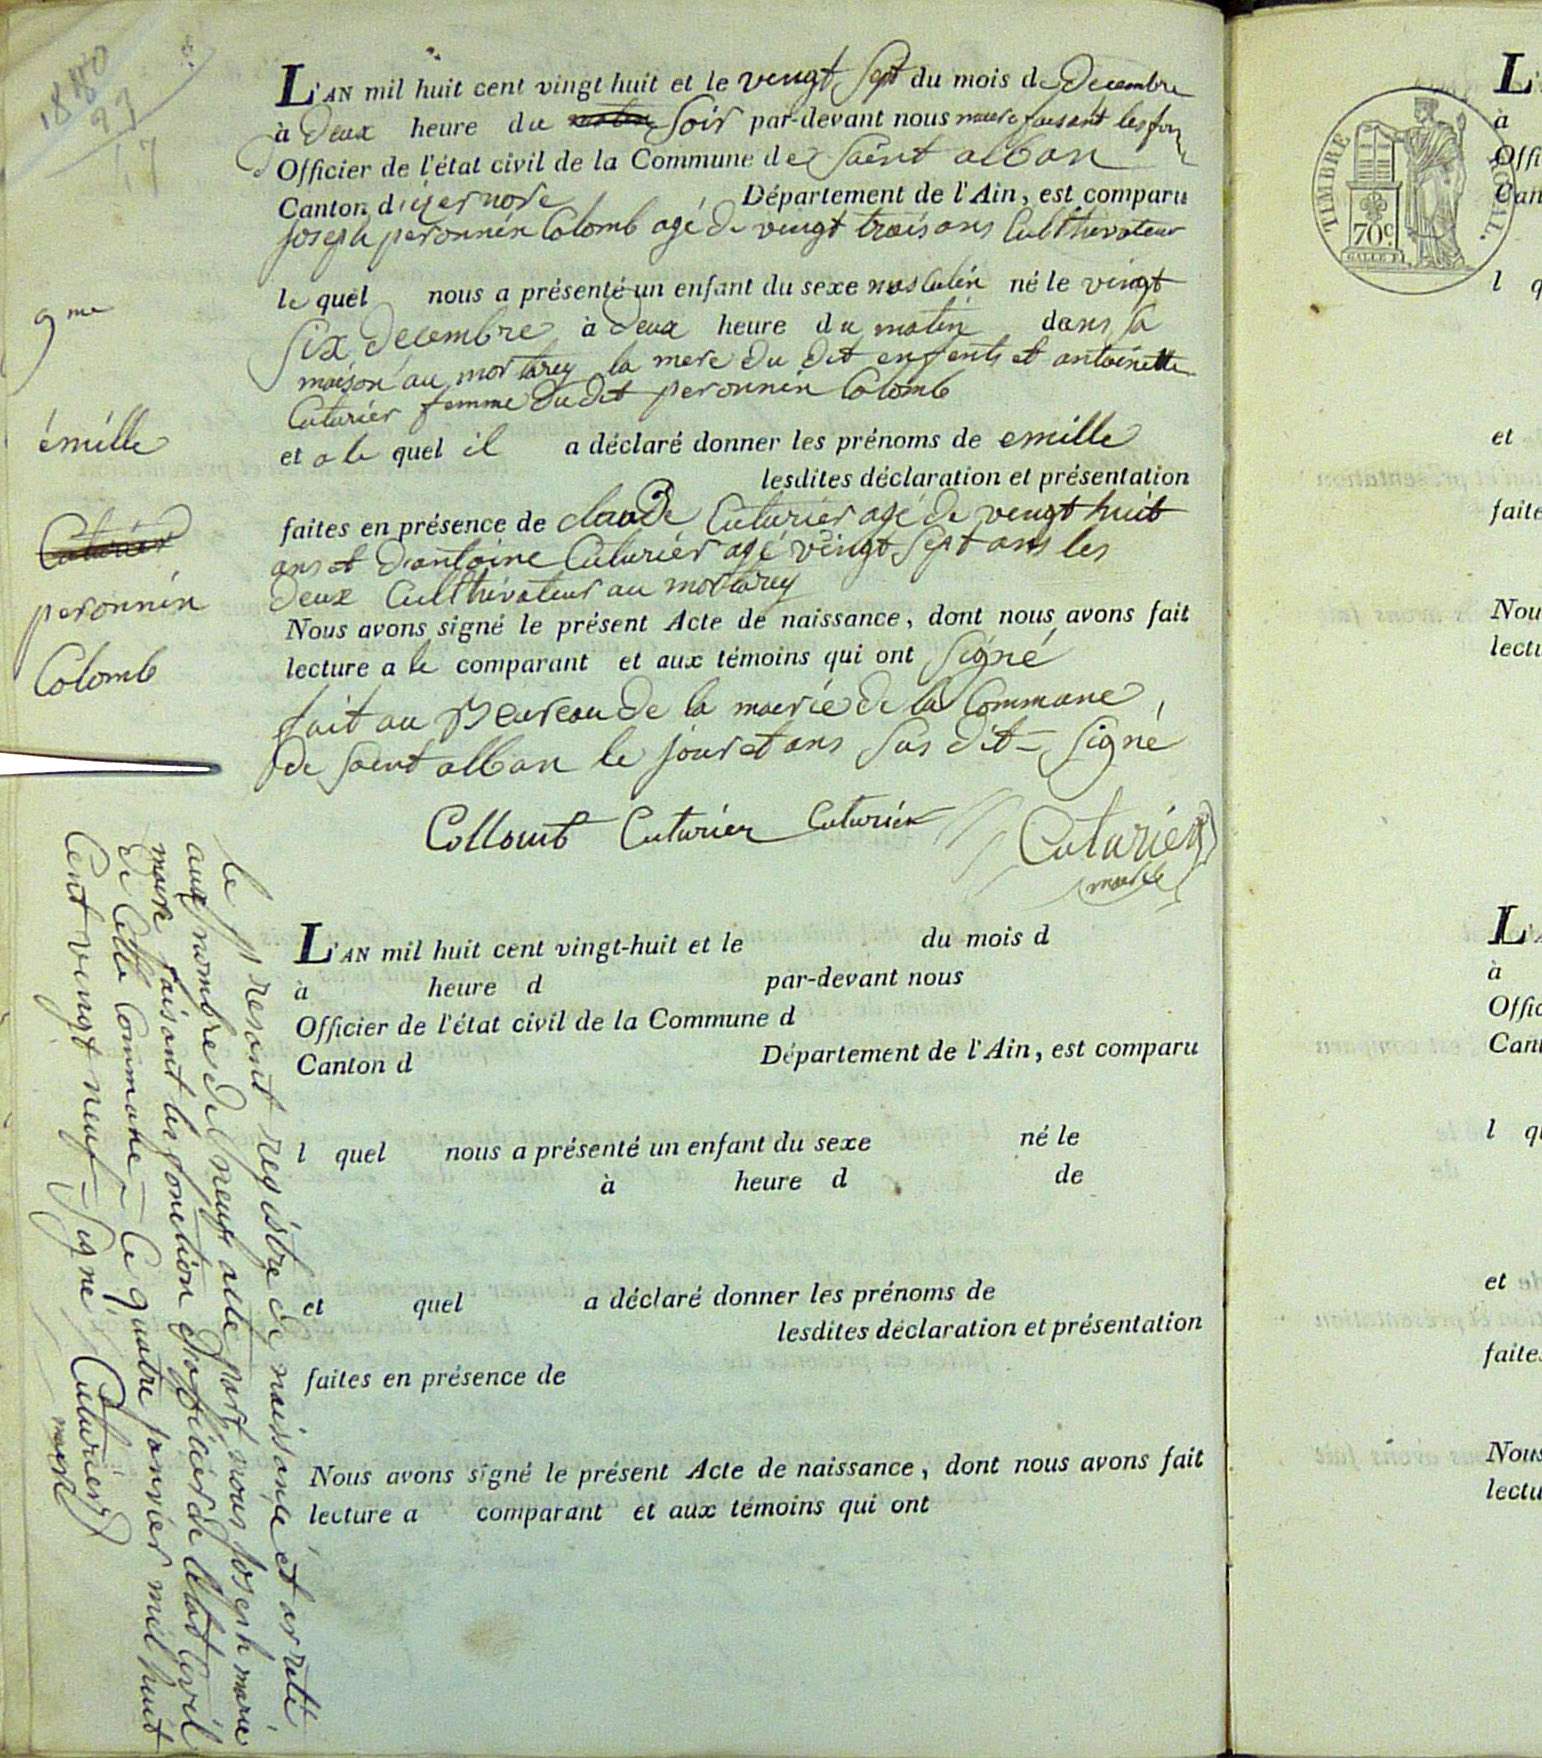 1880
93
17
L'AN mil huit cent vingt huit et le vingt sept du mois de decembre
à deux heure du matin Soir par-devant nous maire faisant les fon
Officier de l'état civil de la Commune de Saint alban
Canton d'izernore Département de l'Ain, est comparu
joseph peronnin Colomb agé de vingt trois ans Culthivateur
le quel nous a présenté un enfant du sexe masculin né le vingt
Six decembre à deux heure du matin dans sa
maison au mortarey la mere du dit enfents et antoinette
Cuturier femme du dit peronnin Colomb
et a le quel il a déclaré donner les prénoms de emille
lesdites déclaration et présentation
faites en présence de claude Cuturier agé de vengt huit
ans et d'antoine Cuturier agé vingt Sept ans les
deux Culthivateur au mortarey
Nous avons signé le présent Acte de naissance, dont nous avons fait
lecture a le comparant et aux témoins qui ont Signé
fait au Beureau de la mairie de la Commune
de Saint alban le jour et ans Sus dit = Signé
Collomb Cuturier Cuturier Cuturier
maire
9me
émille
Cuturier
peronnin
Colomb
L'AN mil huit cent vingt-huit et le du mois d
à heure d par-devant nous
Officier de l'état civil de la Commune d
Canton d Département de l'Ain, est comparu
l quel nous a présenté un enfant du sexe né le
à heure d de
et quel a déclaré donner les prénoms de
lesdites déclaration et présentation
faites en présence de
Nous avons signé le présent Acte de naissance, dont nous avons fait
lecture a comparant et aux témoins qui ont
le present registre de naissance et arrété
aux nombre de neuf acte part nous joseph marie
maire faisant les fonction d'officier de l'état Civil
de Cette Commune = Ce quatre janvier mil huit
Cent vengt neuf = Signé Cuturier
maire
TIMBRE ROYAL.
70c
L'
à
Offi
Can
l q
et
faite
Nou
lectu
L'A
à
Offic
Cant
l qu
et
faites
Nous
lectu